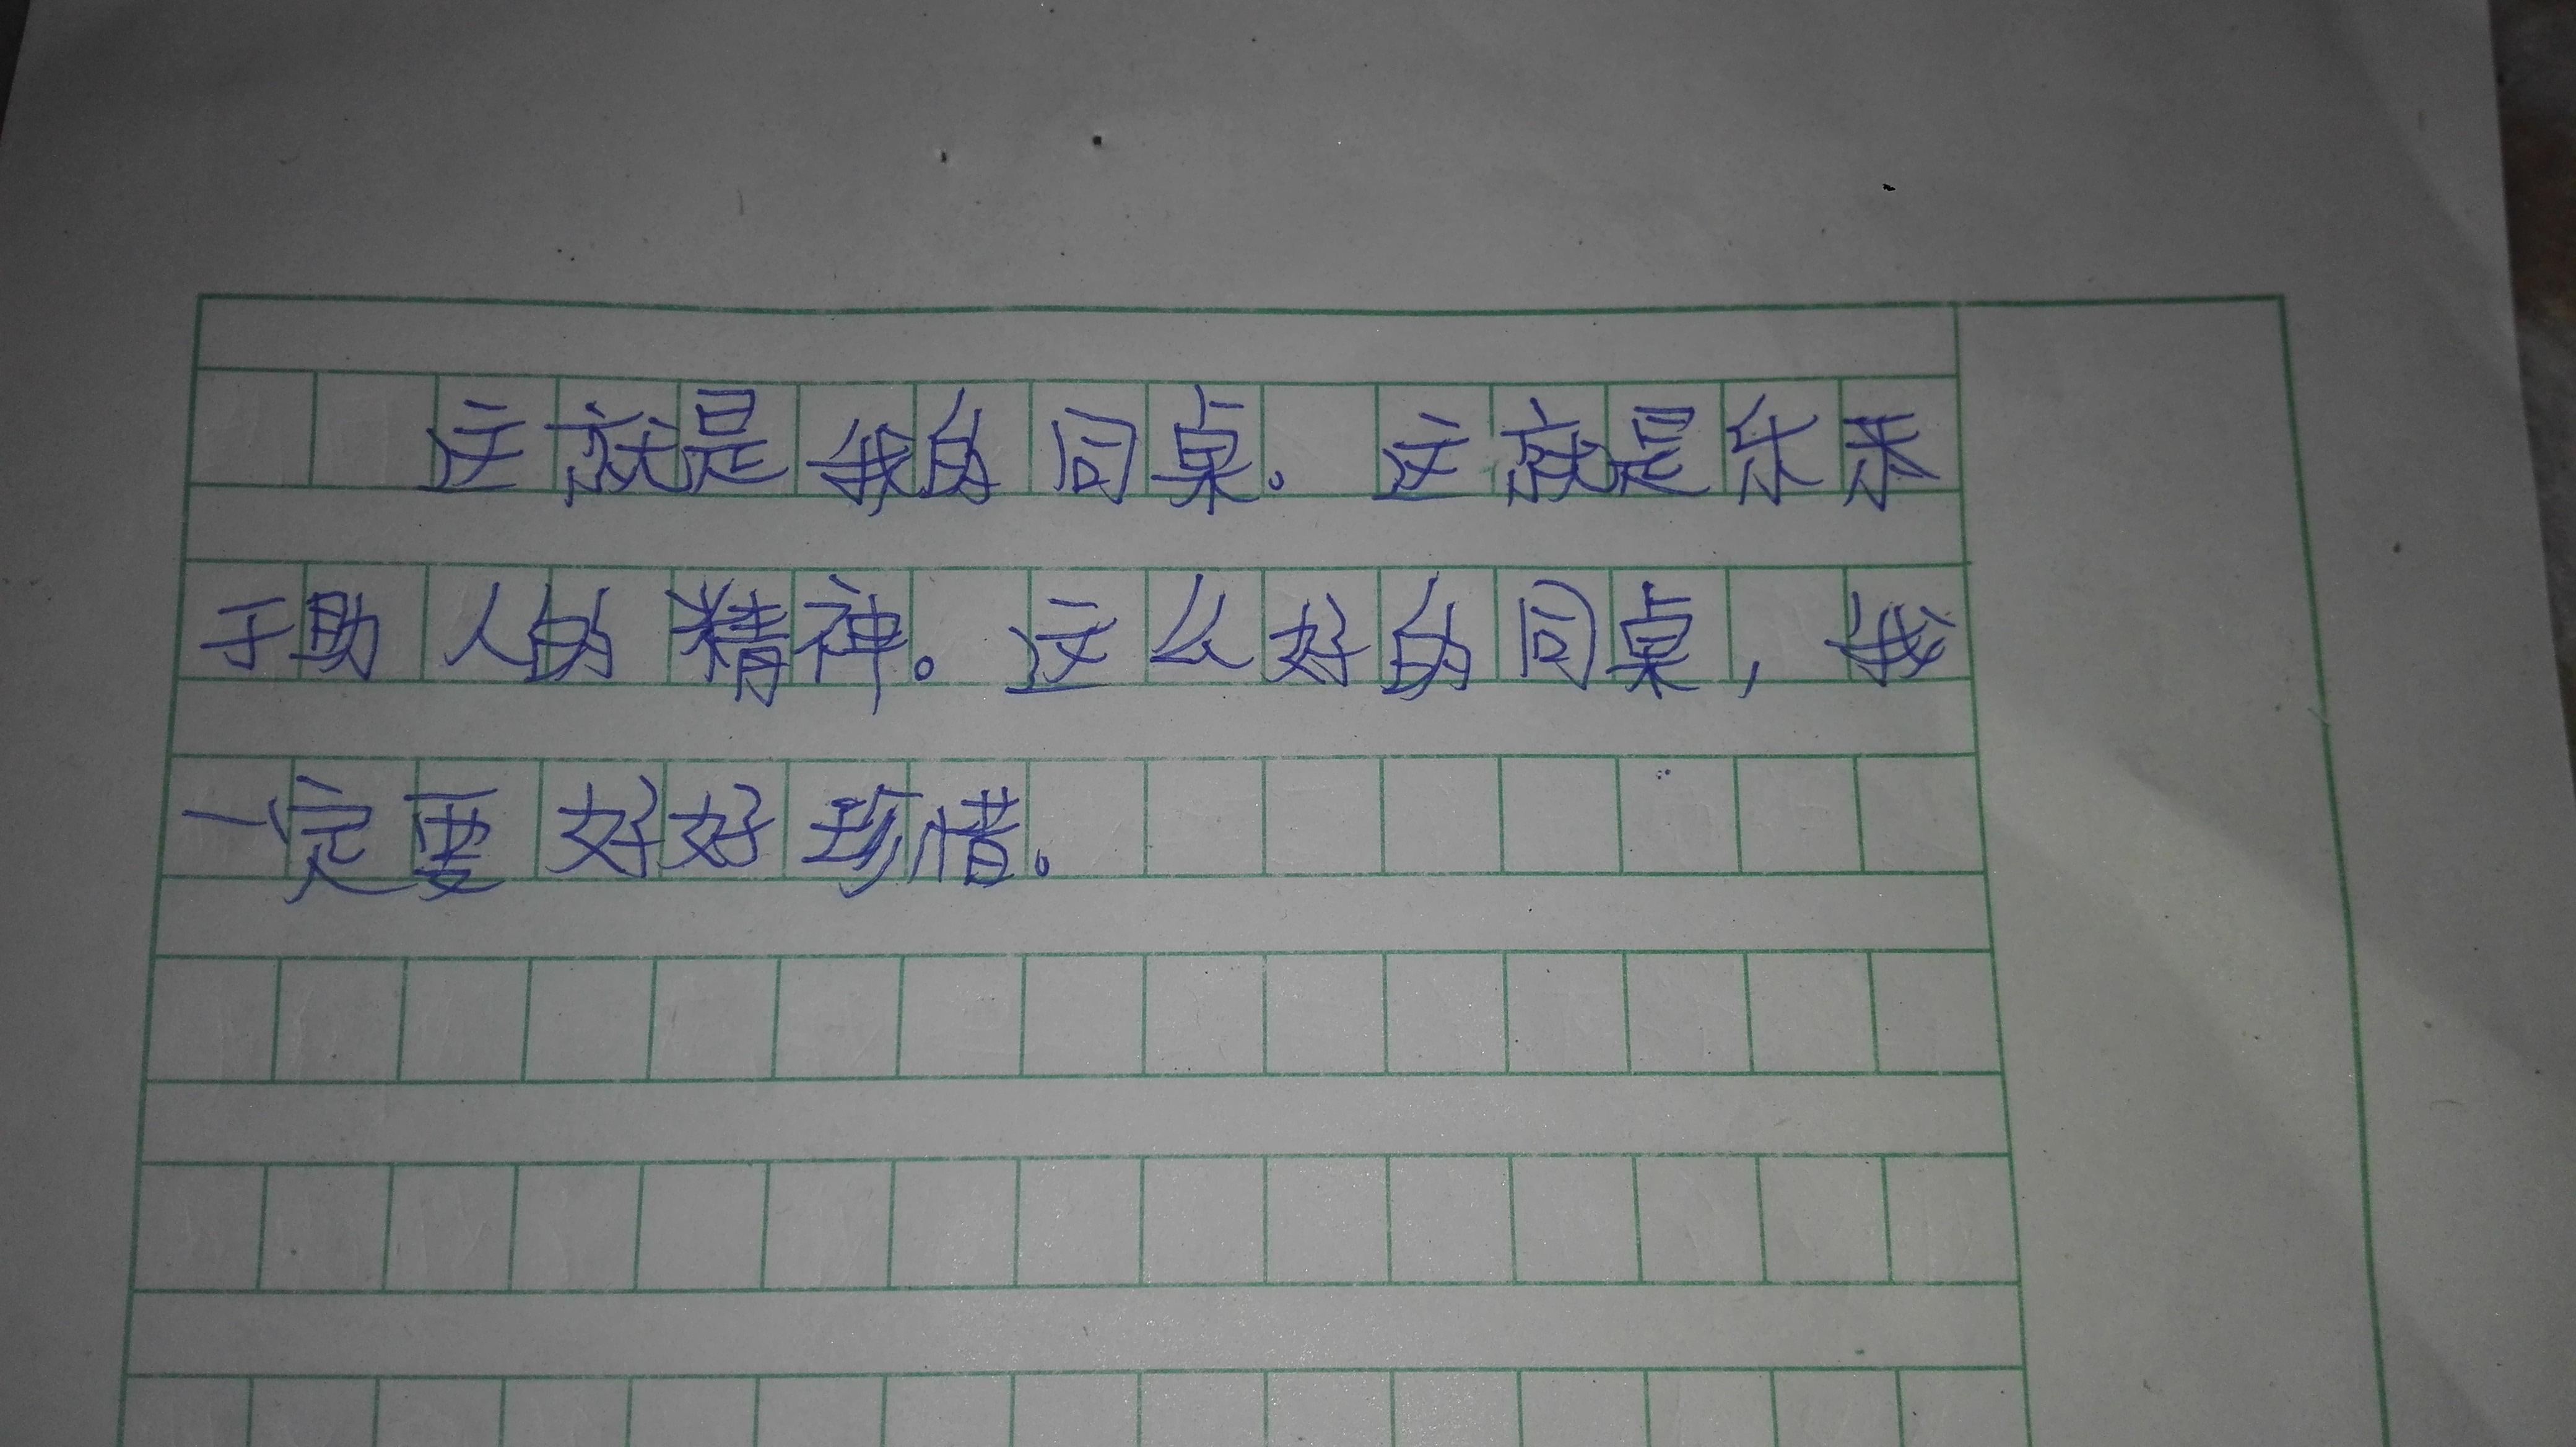 这就是我的同桌。这就是乐
于助人的精神。这么好的同桌,我
一定要好好珍惜。